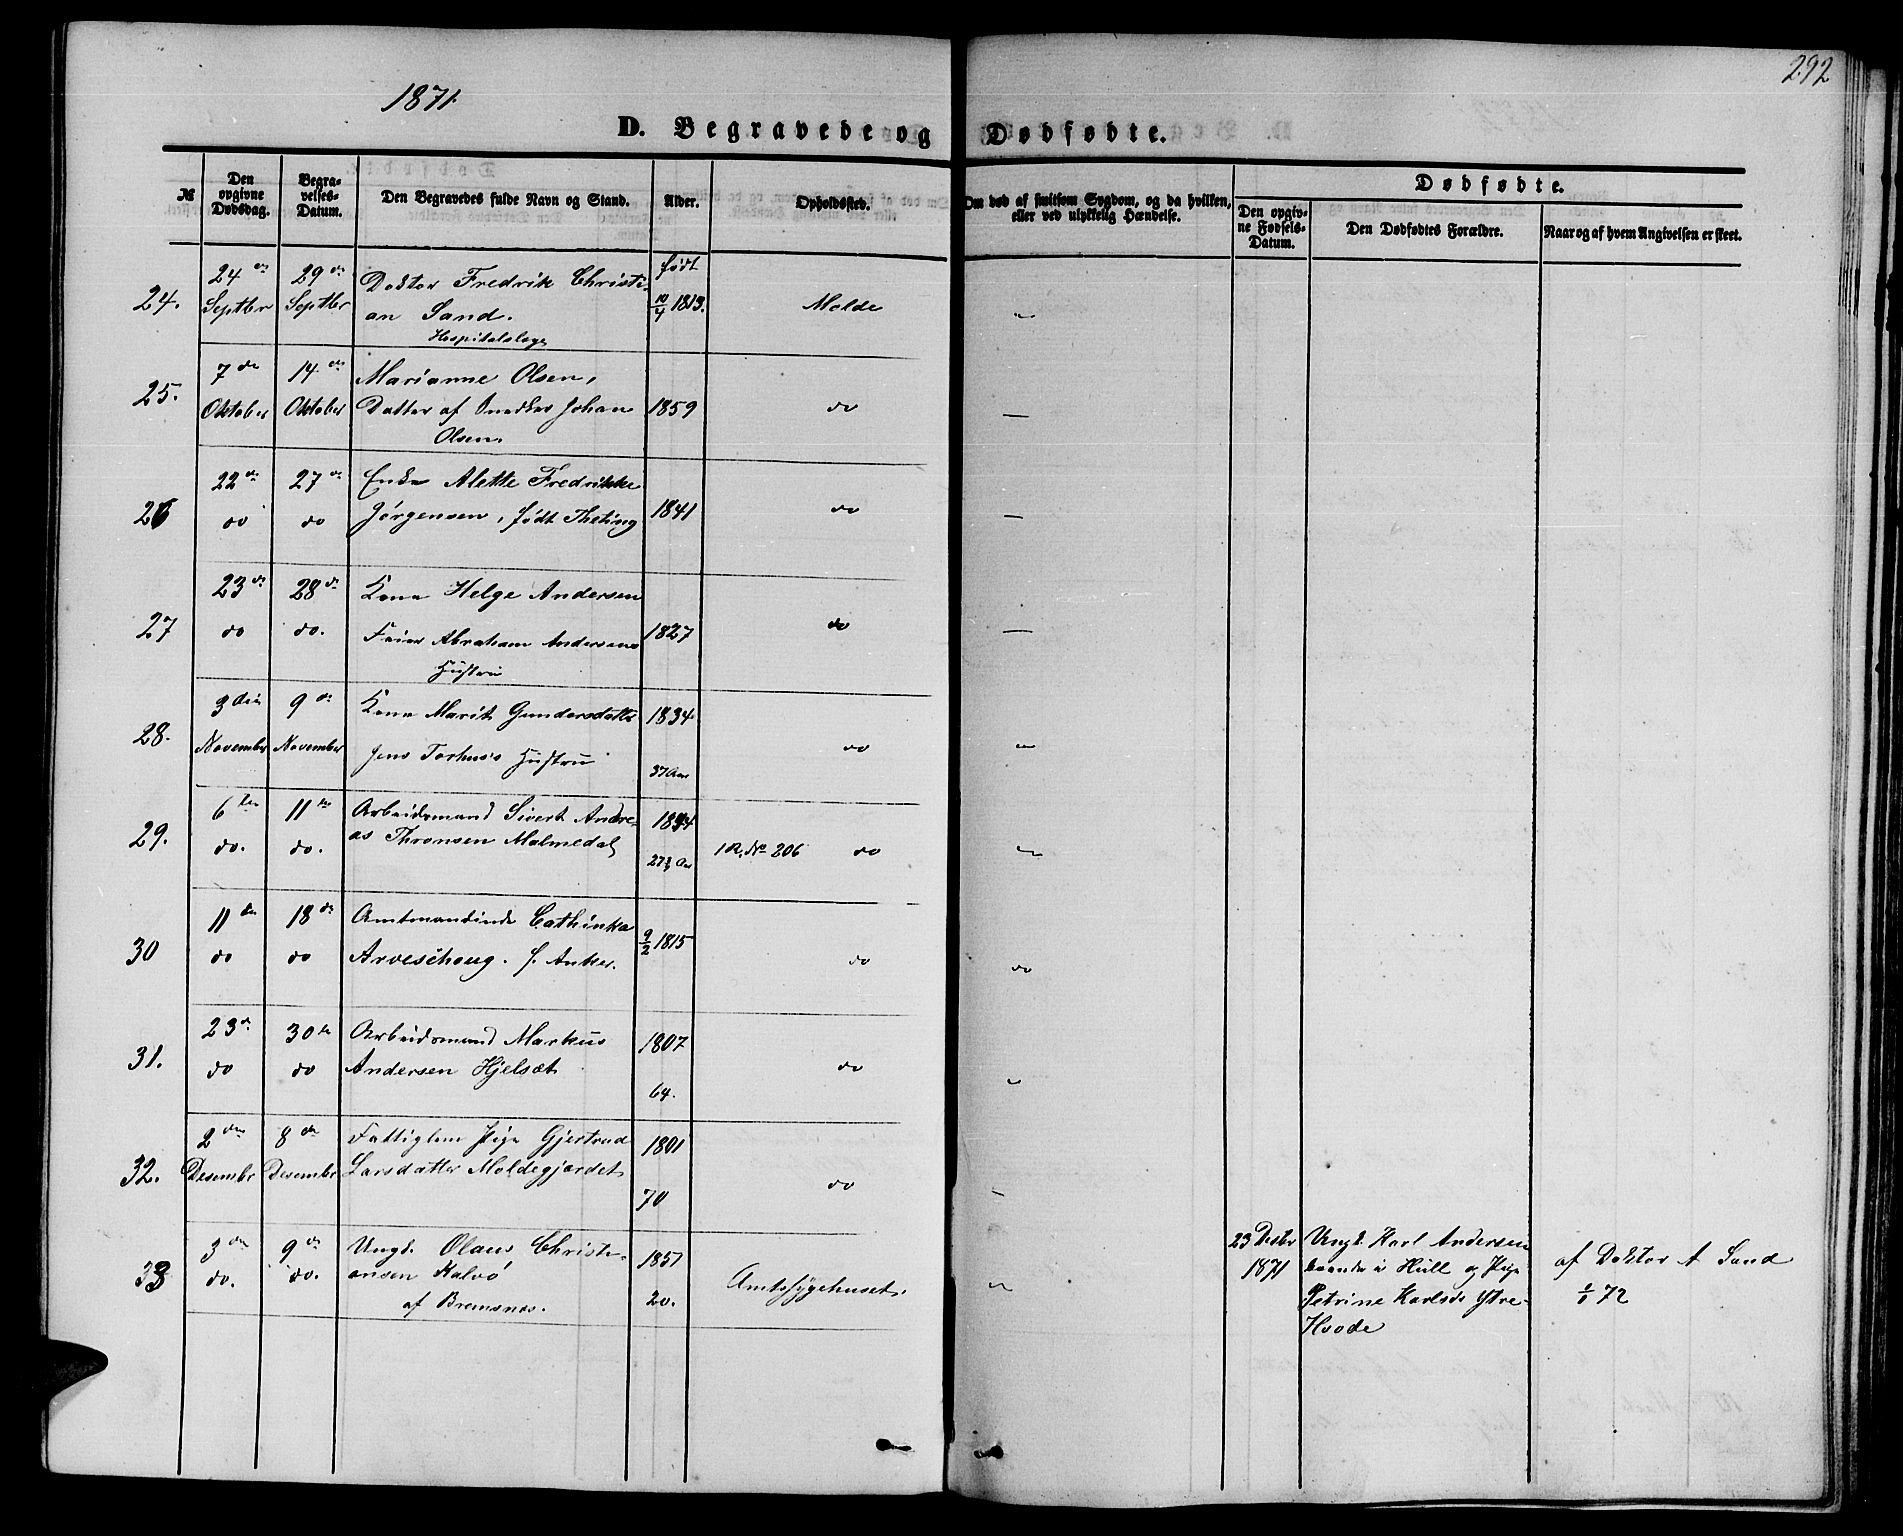 1871.
292
D. Begravede og Dødfødte.
№
Den opgivne Dødsdag.
Begravelses-Datum.
Den Begravedes fulde Navn og Stand.
Alder.
Opholdssted.
Om død af smitsom Sygdom, og da hvilken, eller ved ulykkelig Hændelse.
Dødfødte.
Den opgivne Fødsels-Datum.
Den Dødfødtes Forældre.
Naar og af hvem Angivelsen er skeet.
24.
24de Septbr
29de Septbr
Doktor Fredrik Christi-
an Sand.
Hospitalslæge
født
10/4 1813.
Molde
25.
7de Oktober
14de Oktober
Marianne Olsen,
Datter af Snedker Johan
Olsen.
1859
do
—
26
22de do
27de do
Enke Alette Fredrikke
Jørgensen, født Theting
1841
do
—
27
23de do
28de do.
Kone Helge Andersen
Feier Abraham Andersens
Hustru
1827
do
—
28.
3die November
9de November
Kone Marit Gundersdatter
Jens Torhus's Hustru
1834
37 Aar
do
29.
6te do.
11te do.
Arbeidsmand Sivert Andre-
as Thronsen Malmedal
1844
27½ Aar
1 R, No 206 do
30
11te do
18de do
Amtmandinde Cathinka
Arveschoug. f. Anker.
9/2 1815
do
do
31.
23de do
30te do
Arbeidsmand Markus
Andersen Hjelset
1807
64.
do
32.
2den Desember
8de Desember
Fattiglem Pige Gjertrud
Larsdatter Moldegjærdet
1801
70
do
33
3die do.
9de do.
Ungk. Olaus Christi-
ansen Kalvø
af Bremsnes.
1851
20.
Amtssygehuset.
23 Desbr
1871
Ungk. Karl Andersen
boende i Hull og Pige
Petrine Karlsd. Ytre-
Hvode
af Doktor A Sand
2/1 72